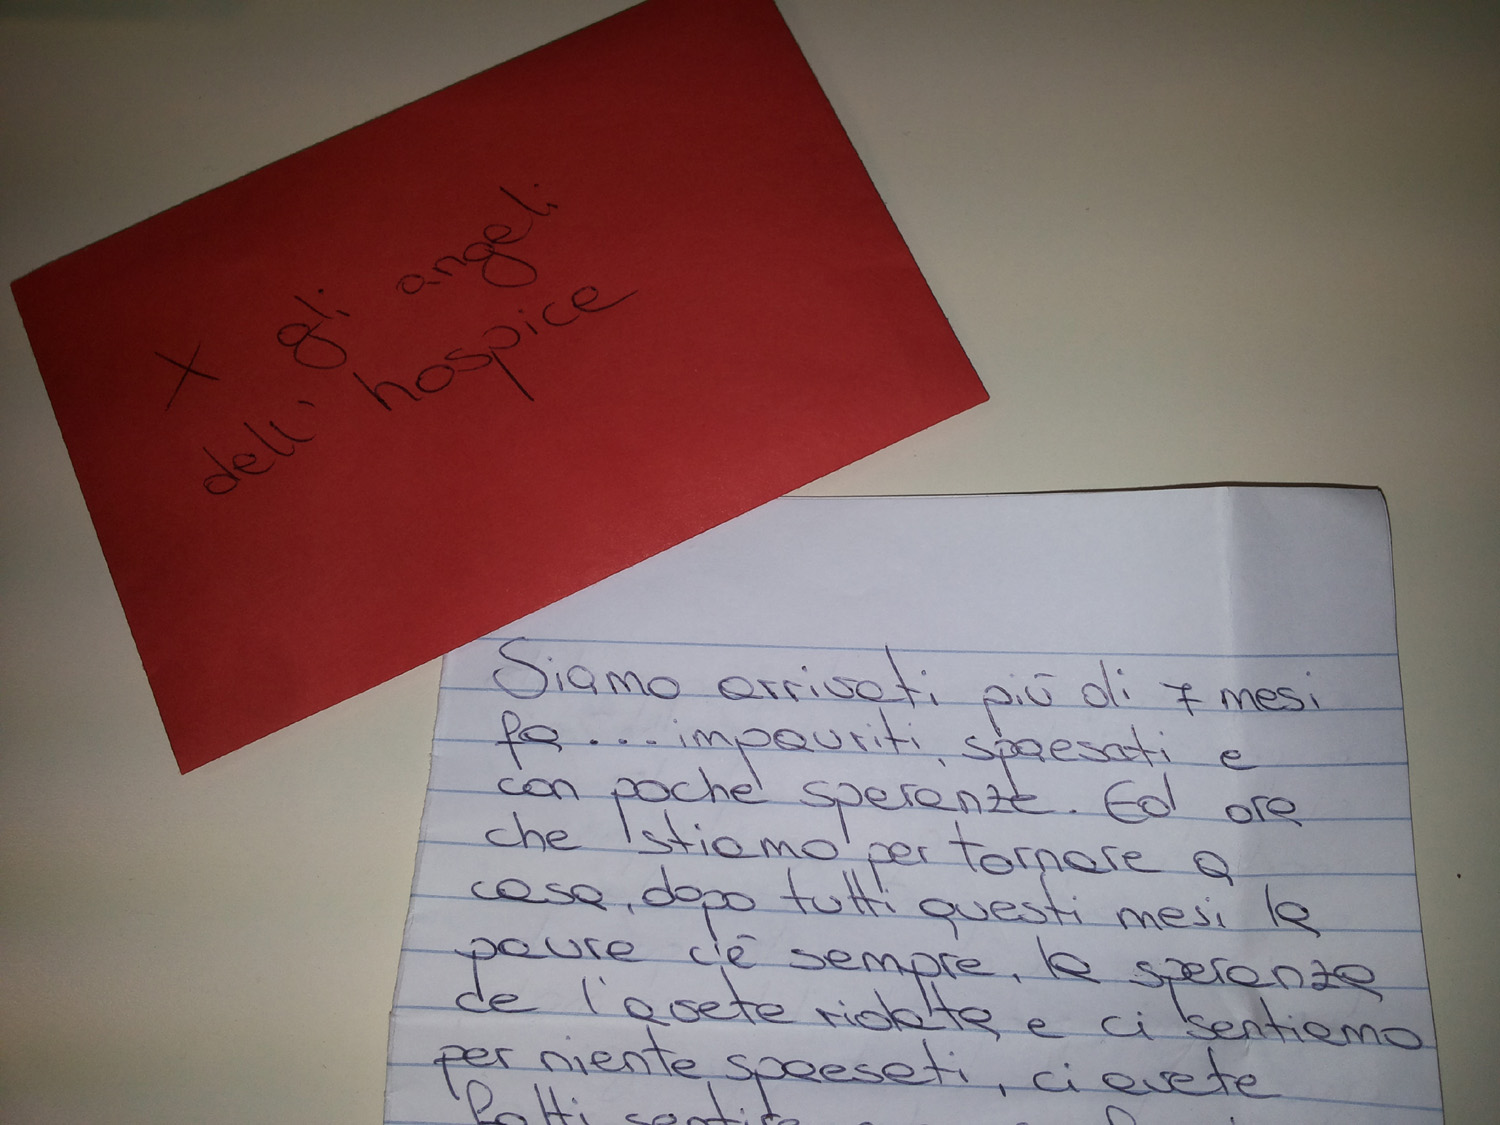 X gli angeli
dell' hospice
Siamo arrivati più di 7 mesi
fa... impauriti, spaesati e
con poche speranze. Ed ora
che stiamo per tornare a
casa, dopo tutti questi mesi la
paura c'è sempre, la speranza
ce l'avete ridata e ci sentiamo
per niente spaesati, ci avete
fatti sentire